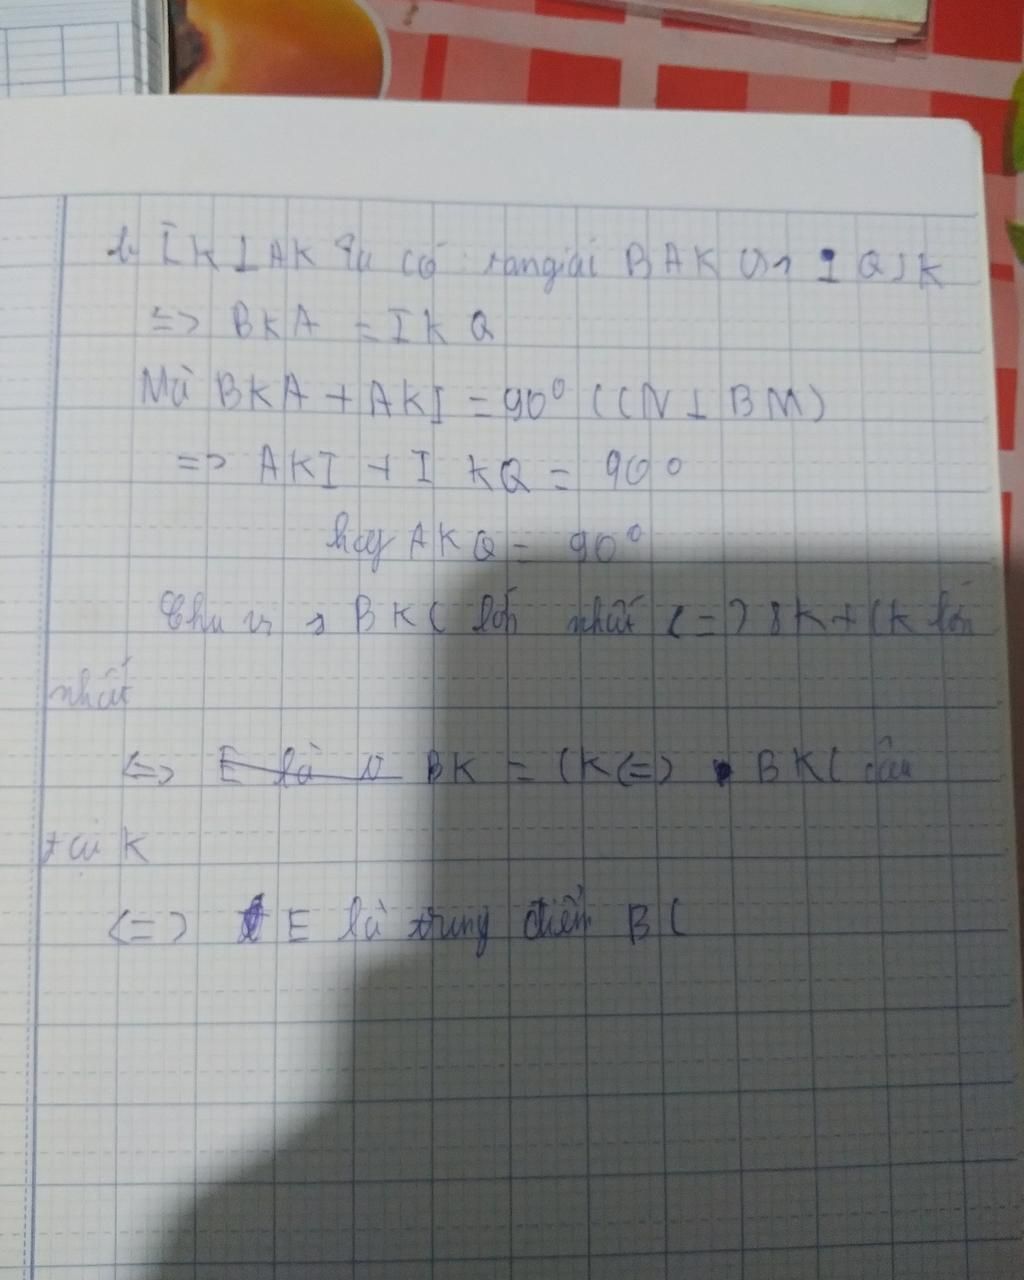 b. IK ⊥ AK Ta có tam giác BAK
<=> BKA = IKQ
Mà BKA + AKI = 90° (CN ⊥ BM)
=> AKI + IKQ = 90°
hay AKQ = 90°
Chu vi BKC lớn nhất <=> BK + CK lớn
nhất
<=> BK = CK <=> BKC cân
tại K
<=> E là trung điểm BC